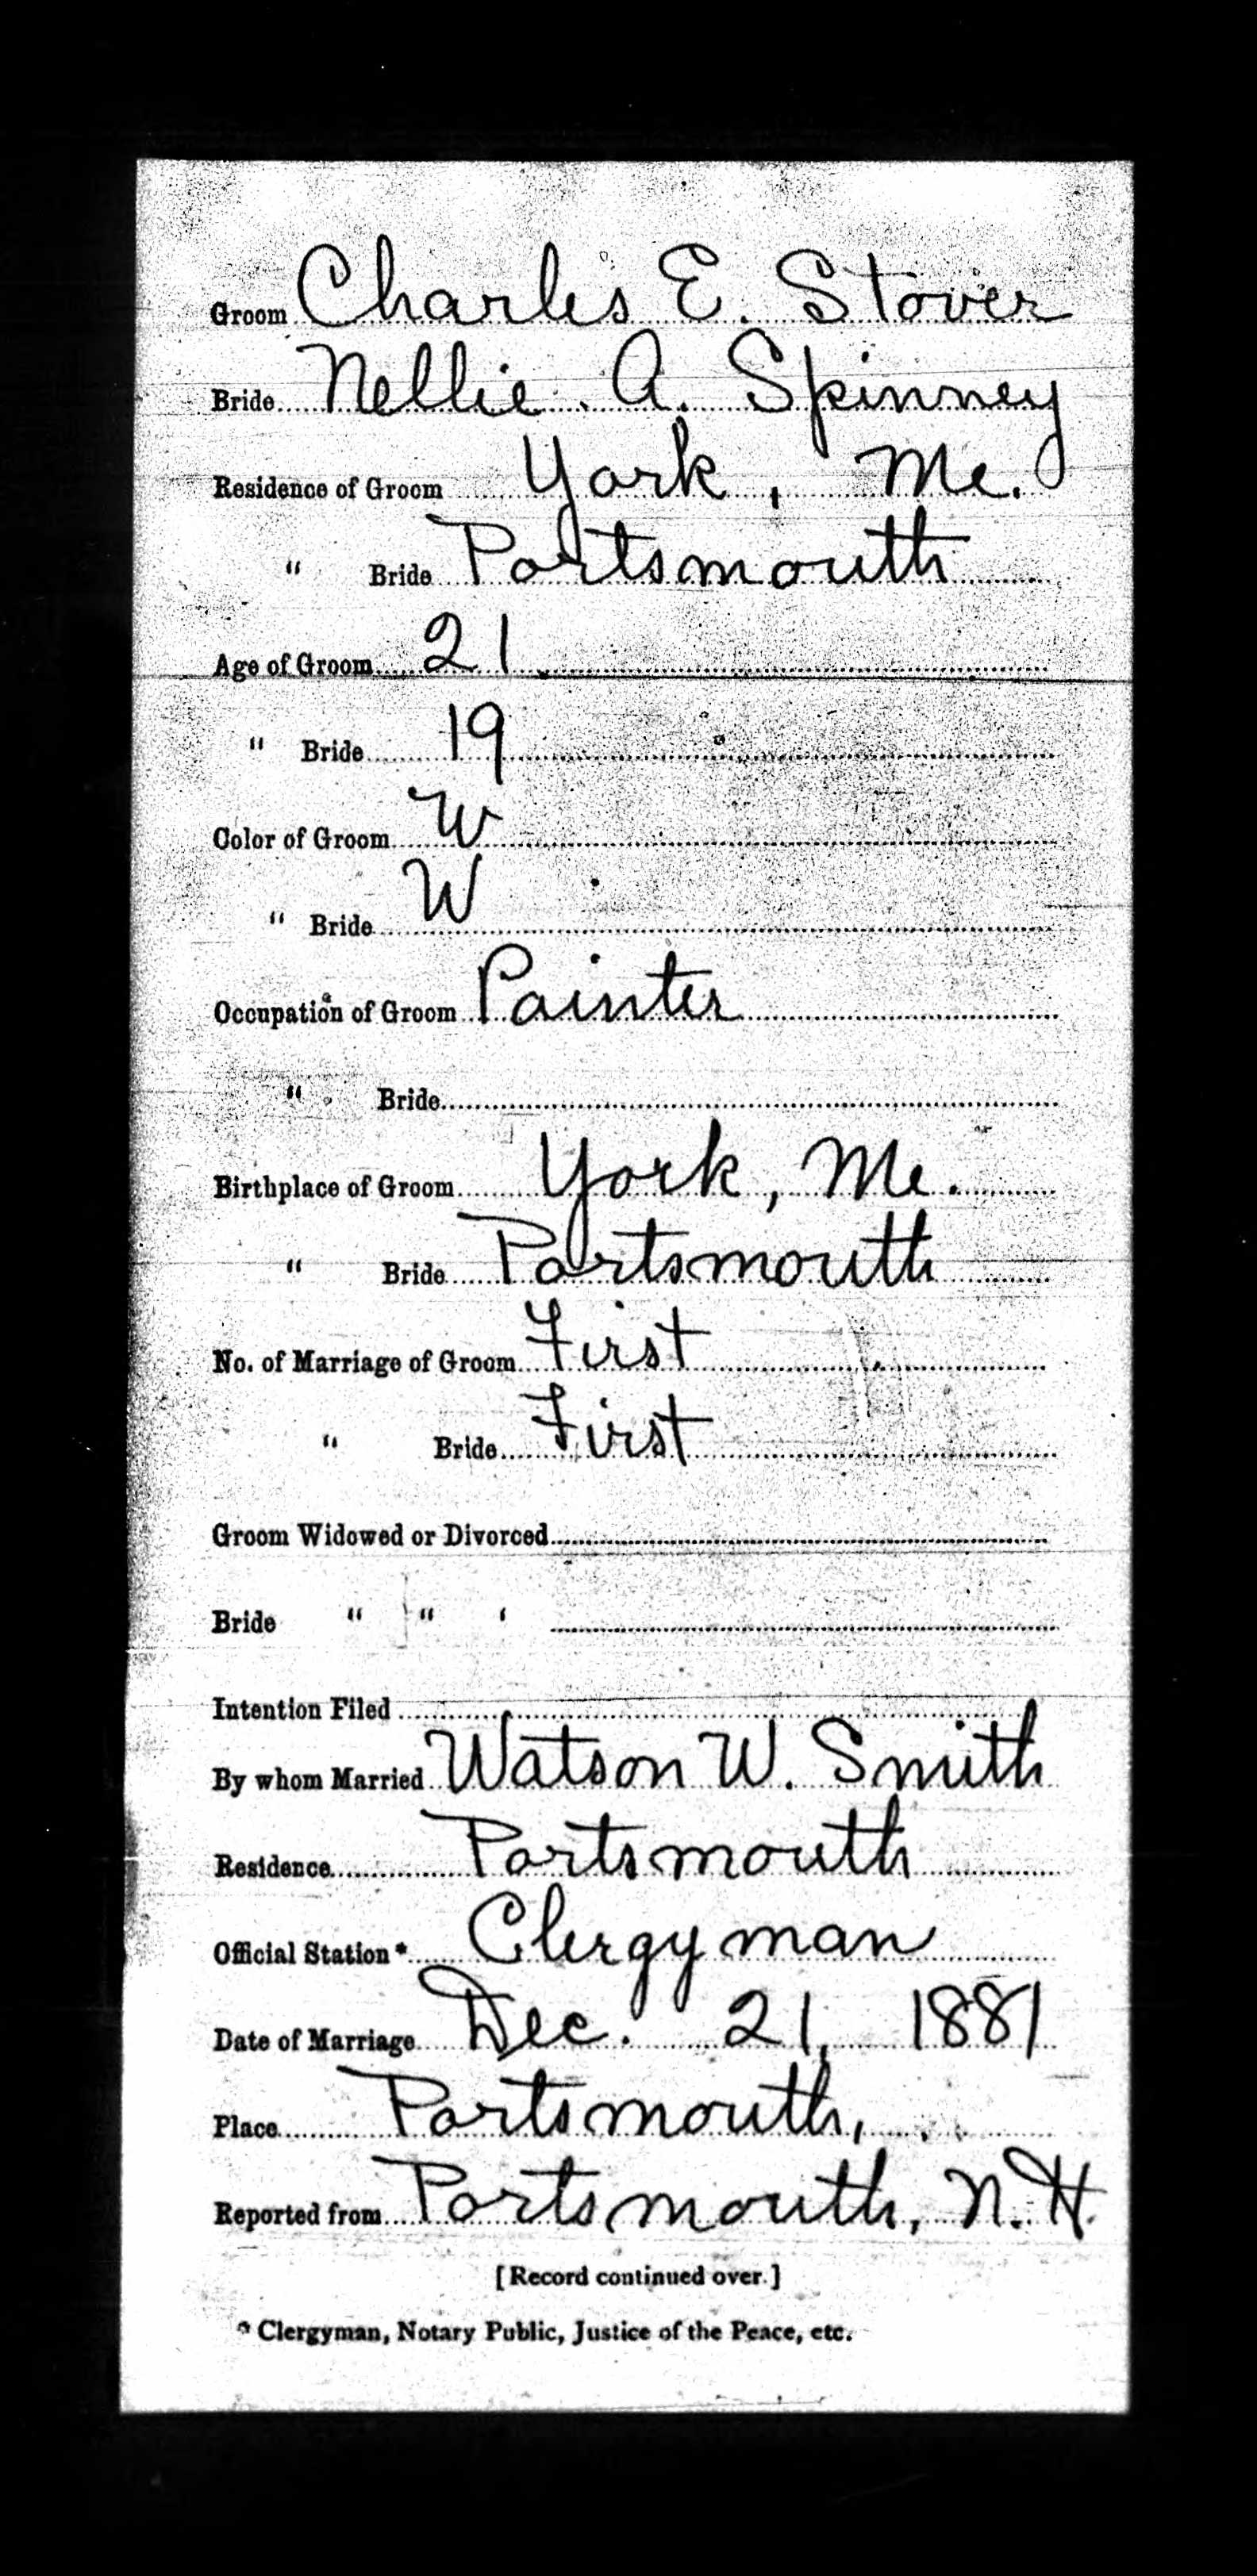 Groom Charles E. Stover
Bride Nellie A. Spinney
Residence of Groom York, Me.
" Bride Portsmouth
Age of Groom 21
" Bride 19
Color of Groom W
" Bride W
Occupation of Groom Painter
" Bride
Birthplace of Groom York, Me.
" Bride Portsmouth
No. of Marriage of Groom First
" Bride First
Groom Widowed or Divorced
Bride " " '
Intention Filed
By whom Married Watson W. Smith
Residence Portsmouth
Official Station* Clergyman
Date of Marriage Dec. 21, 1881
Place Portsmouth,
Reported from Portsmouth, N.H.
[Record continued over.]
* Clergyman, Notary Public, Justice of the Peace, etc.